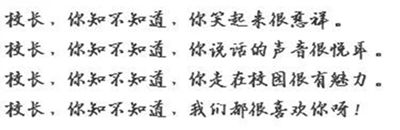 校长，你知不知道，你笑起来很慈祥。
校长，你知不知道，你说话的声音很悦耳。
校长，你知不知道，你走在校园很有魅力。
校长，你知不知道，我们都很喜欢你呀！